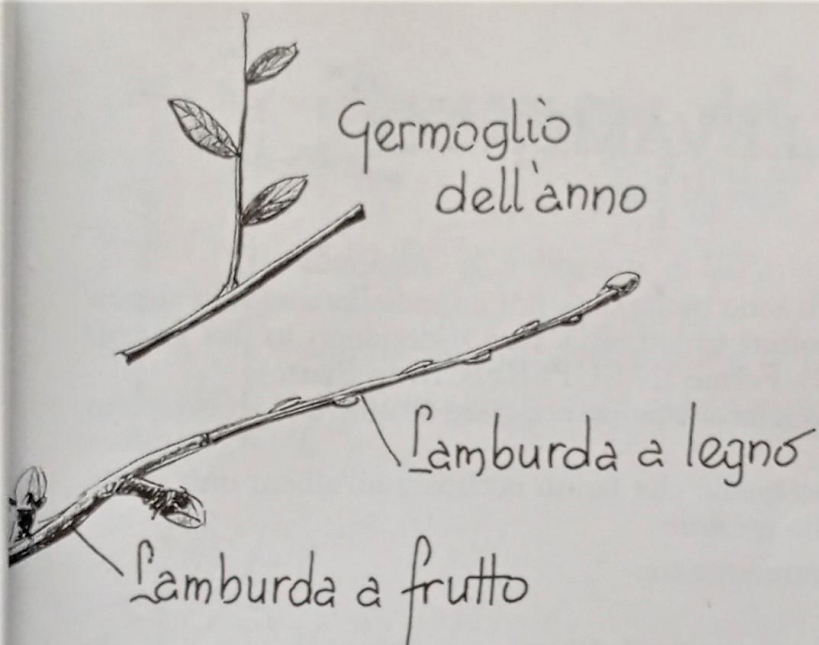 Germoglio
dell'anno
Lamburda a legno
Lamburda a frutto